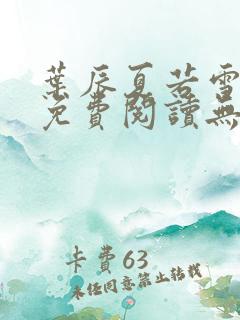 葉辰夏若雪
免費閱讀無
卡費63
未任同意禁止转载